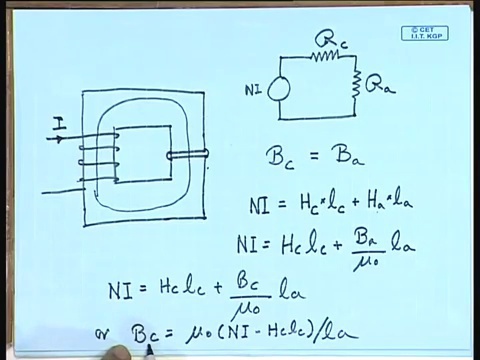 © CET
I.I.T. KGP
R_c
NI
R_a
I
B_c = B_a
NI = H_c * l_c + H_a * l_a
NI = H_c l_c + B_a/μ_0 l_a
NI = H_c l_c + B_c/μ_0 l_a
or B_c = μ_0 (NI - H_c l_c)/l_a